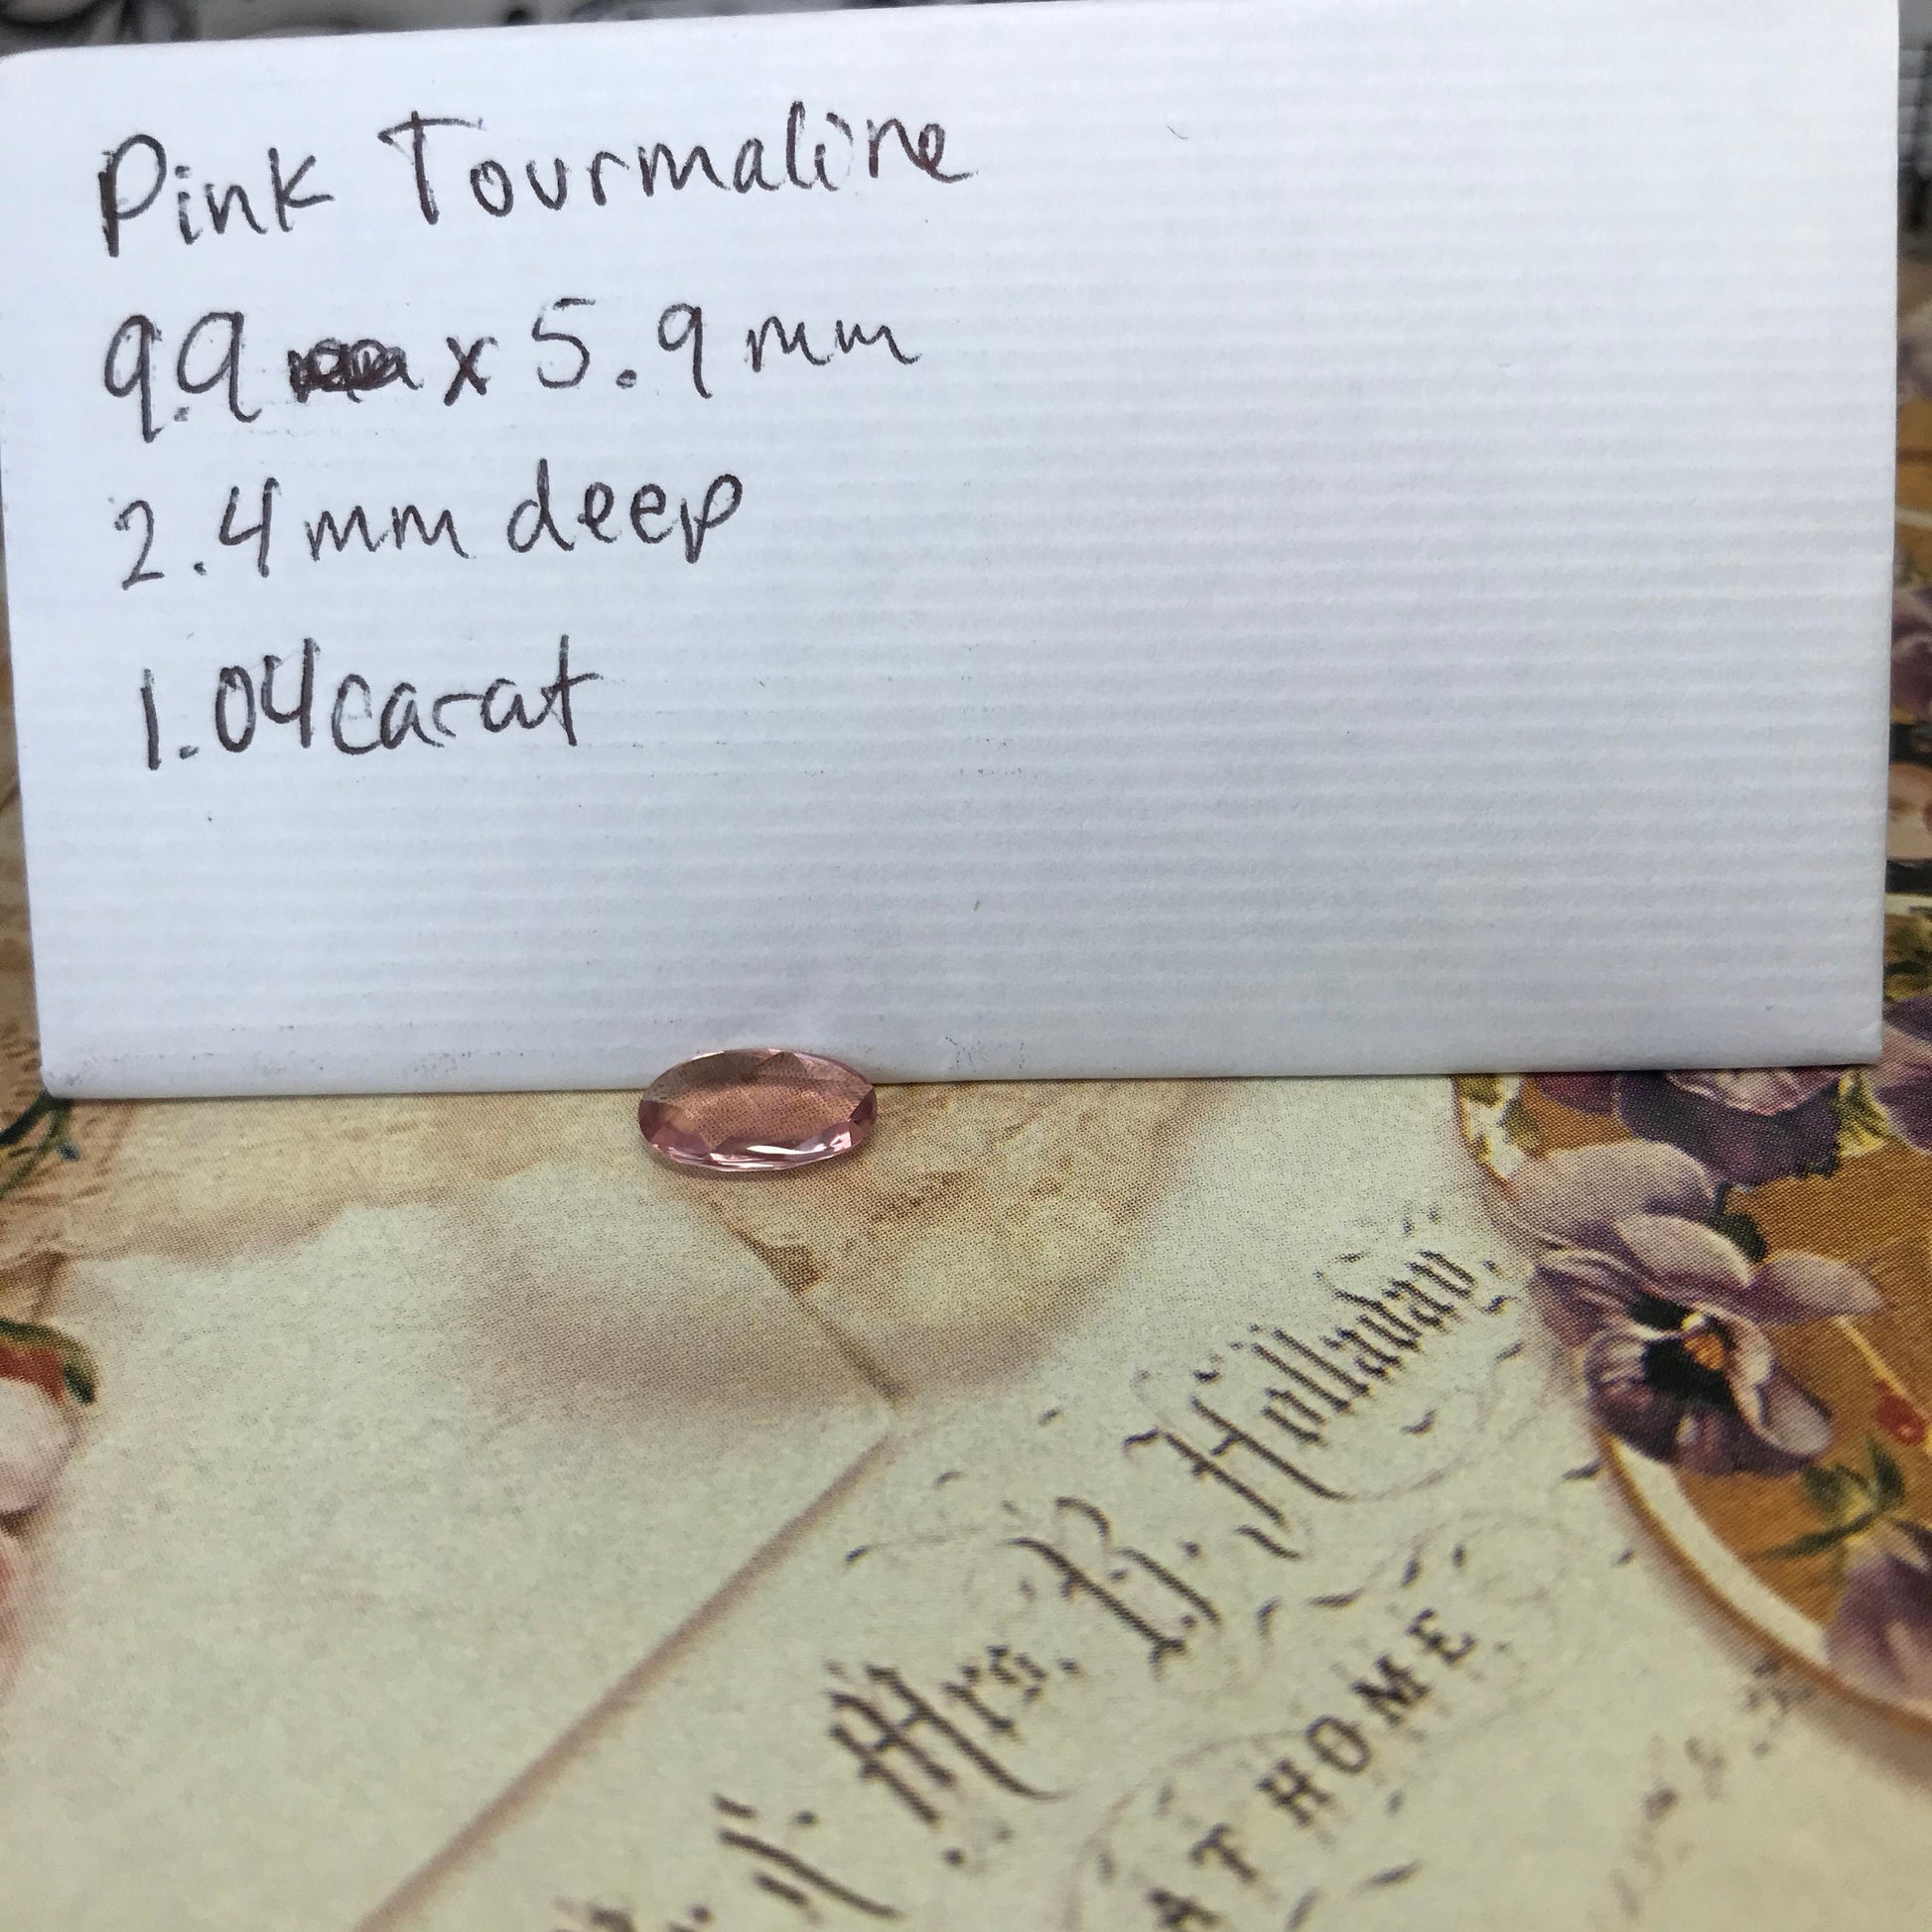 Pink Tourmaline
9.9 x 5.9mm
2.4mm deep
1.04carat
Mrs. B. Holladay.
AT HOME